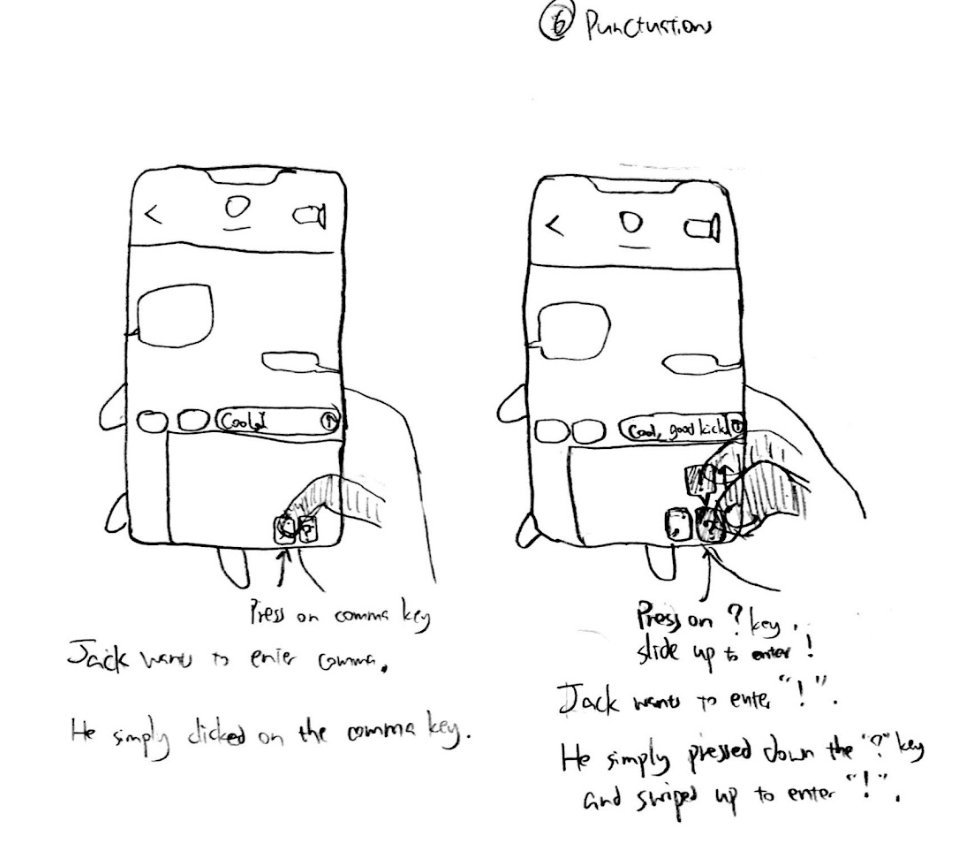 6 Punctuations
Cool
Cool, good kick
?
!
?
Press on comma key
Jack wants to enter comma.
He simply clicked on the comma key.
Press on ? key.
slide up to enter !
Jack wants to enter "!".
He simply pressed down the "?" key
and swiped up to enter "!".